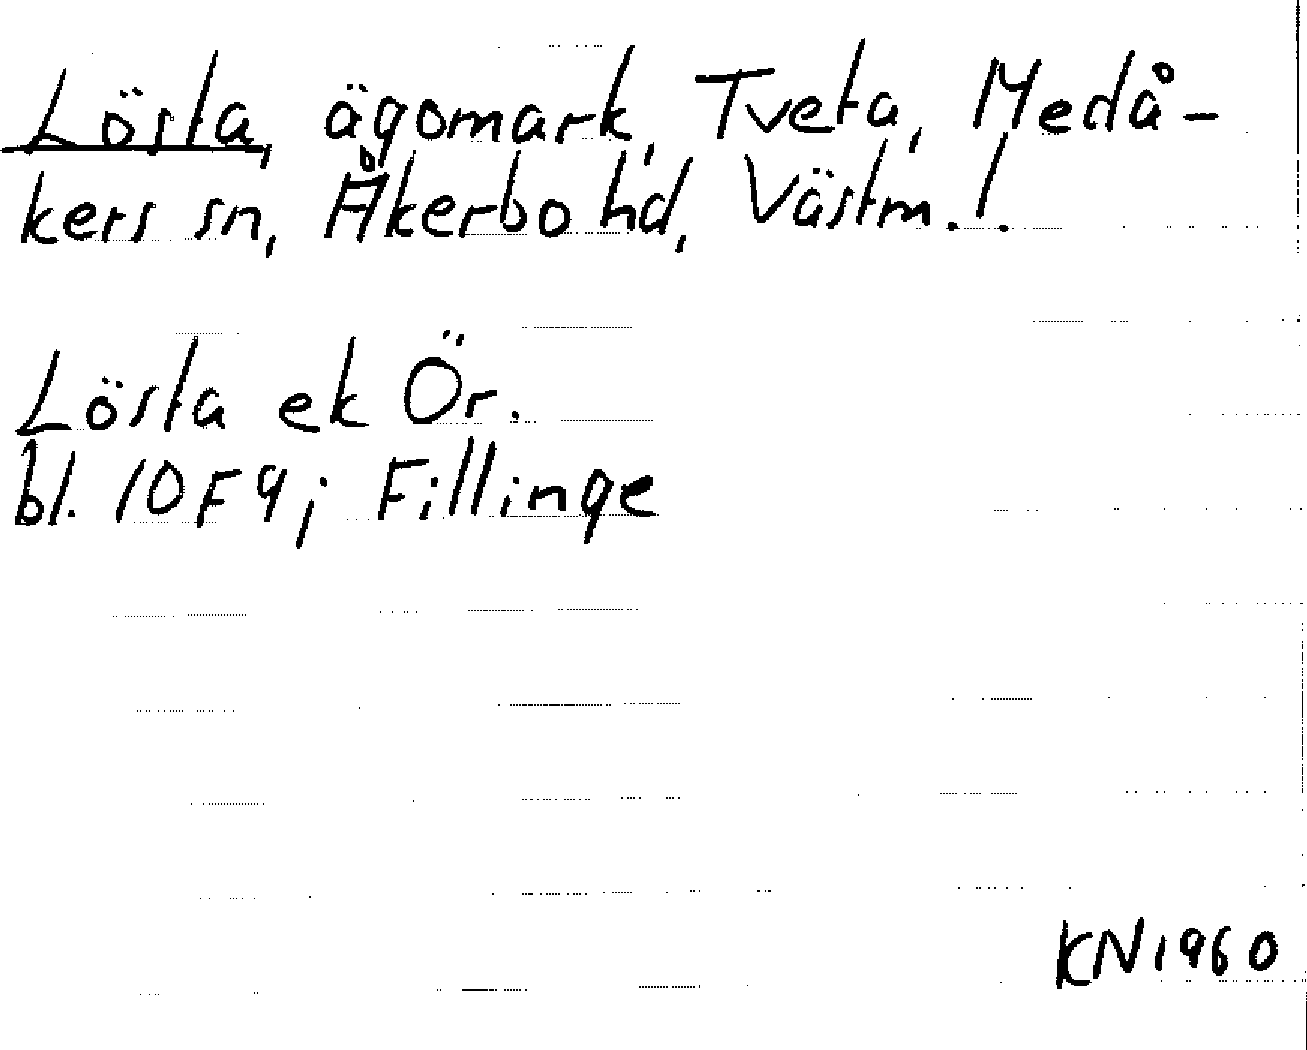 Lösta, ägomark, Tveta, Medå-
kers sn, Åkerbo hd, Västm. l.
Lösta ek Ör.
bl. 10F9j Fillinge
KN1960